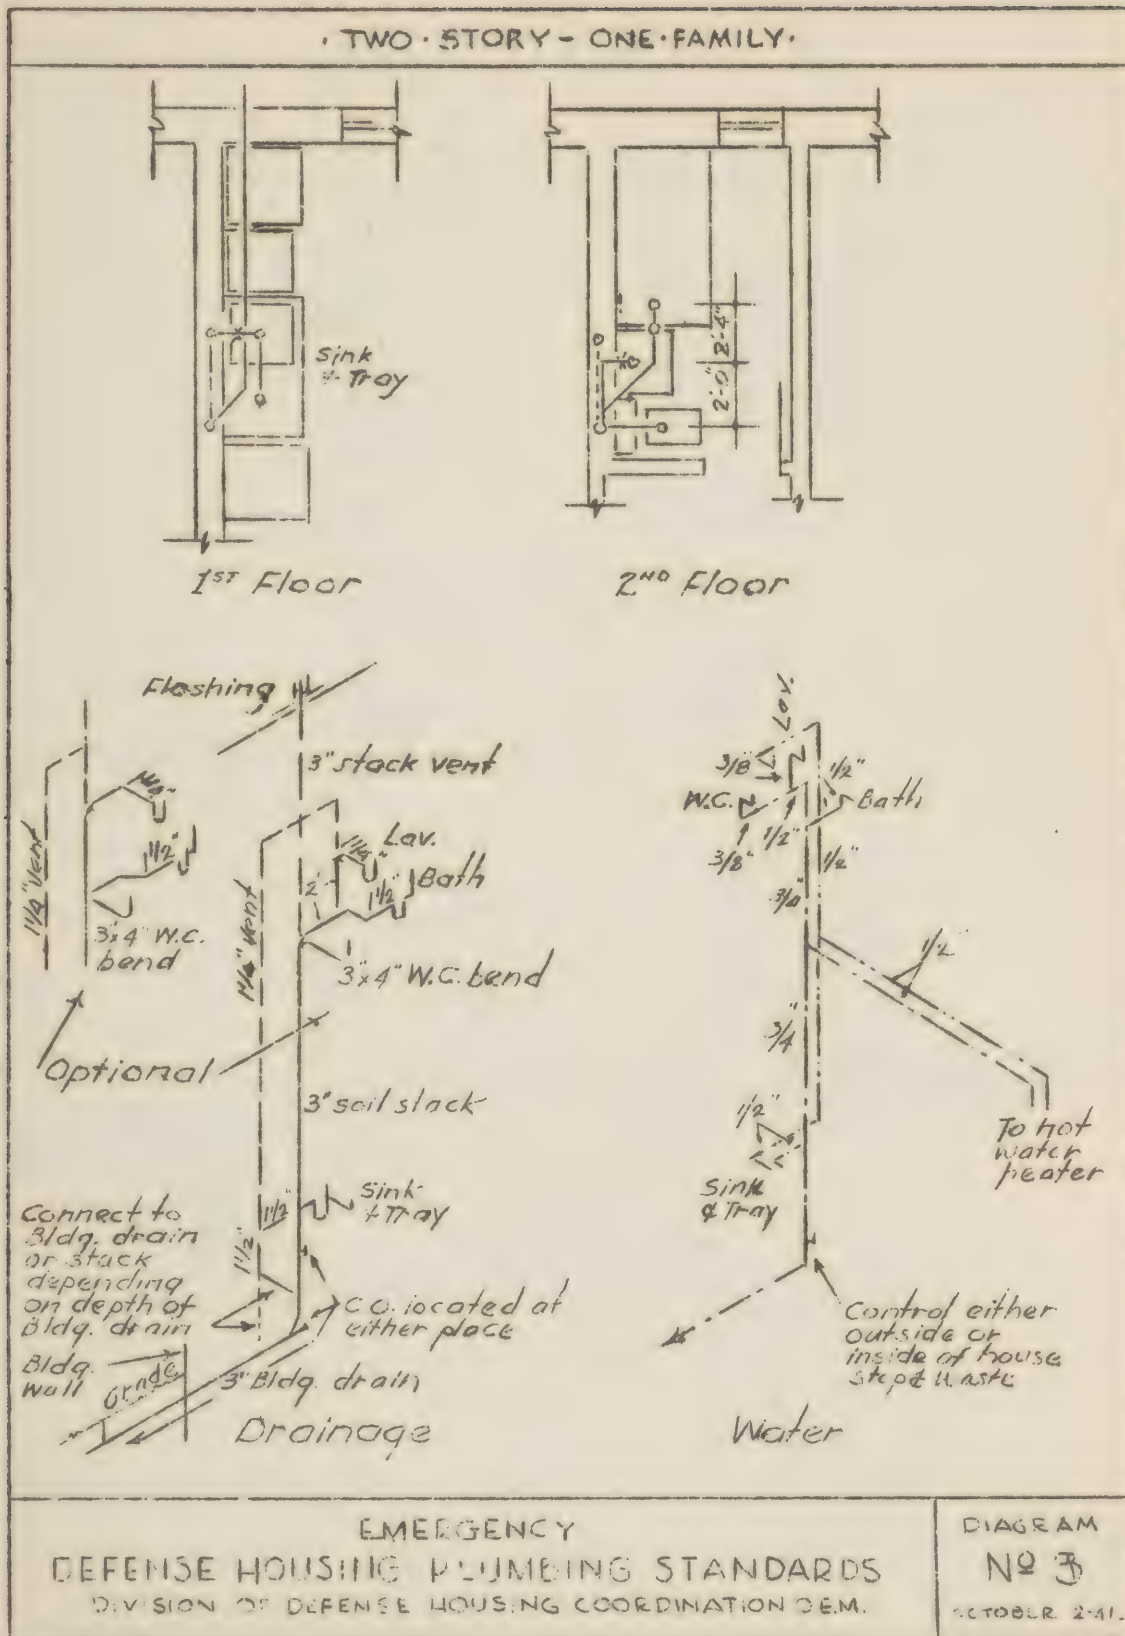 · TWO · STORY - ONE · FAMILY ·
Sink
& Tray
2'-4"
2'-0"
1ST Floor
2ND Floor
Flashing
3" stack vent
1 1/4" Vent
1 1/4"
1 1/2"
3"x4" W.C.
bend
1 1/4" Vent
2"
1 1/4"
Lav.
1 1/2"
Bath
3"x4" W.C. bend
Optional
3" soil stack
1 1/2"
Sink
& Tray
1 1/2"
Connect to
Bldg. drain
or stack
depending
on depth of
Bldg. drain
C.O. located at
either place
Bldg.
Wall
Grade
3" Bldg. drain
Drainage
Lav.
3/8"
1/2"
W.C.
Bath
1/2"
3/8"
1/2"
3/4"
1/2"
3/4"
1/2"
To hot
water
heater
Sink
& Tray
Control either
outside or
inside of house
Stop & Waste
Water
EMERGENCY
DEFENSE HOUSING PLUMBING STANDARDS
DIVISION OF DEFENSE HOUSING COORDINATION O.E.M.
DIAGRAM
Nº 3
OCTOBER 2-41.